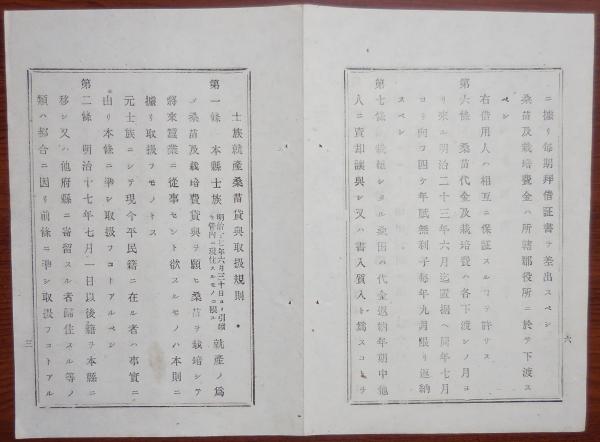 ニ據リ每期拜借証書ヲ差出スベシ
桑苗及栽培費金ハ所轄郡役所ニ於テ下渡ス
ベシ
右借用人ハ相互ニ保証スルヿヲ許サス
第六條 桑苗代金及栽培費ハ各下渡シノ月ヨ
リ來ル明治二十三年六月迄置据ヘ同年七月
ヨリ向フ四ケ年賦無利子每年九月限リ返納
スベシ
第七條 栽植シタル桑田ハ代金返納年期中他
人ニ賣却讓與シ又ハ書入質入ト爲スコトヲ
六
士族就產桑苗貸與取扱規則
第一條 本縣士族 明治十七年六月三十日ヨリ引續キ管內ニ現住スルモノニ限ル 就產ノ爲
メ桑苗及栽培費貸與ヲ願ヒ桑苗ヲ栽培シテ
將來蠶業ニ從事セント欲スルモノハ本則ニ
據リ取扱フモノトス
元士族ニシテ現今平民籍ニ在ル者ハ事實ニ
由リ本條ニ準シ取扱フコトアルベシ
第二條 明治十七年七月一日以後籍ヲ本縣ニ
移シ又ハ他府縣ニ寄留スル者歸住スル等ノ
類ハ都合ニ因リ前條ニ準シ取扱フコトアル
三